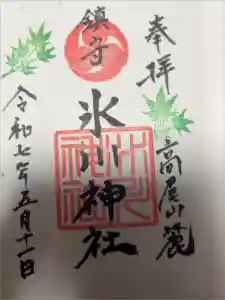 奉拝
高尾山麓
鎮守
氷川神社
令和七年五月十一日